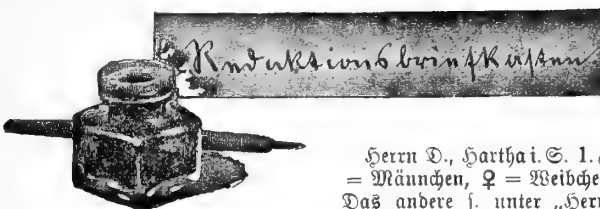 Redaktionsbriefkasten
Herrn D., Hartha i. S. 1.
= Männchen, ♀ = Weibche
Das andere s. unter „Herr